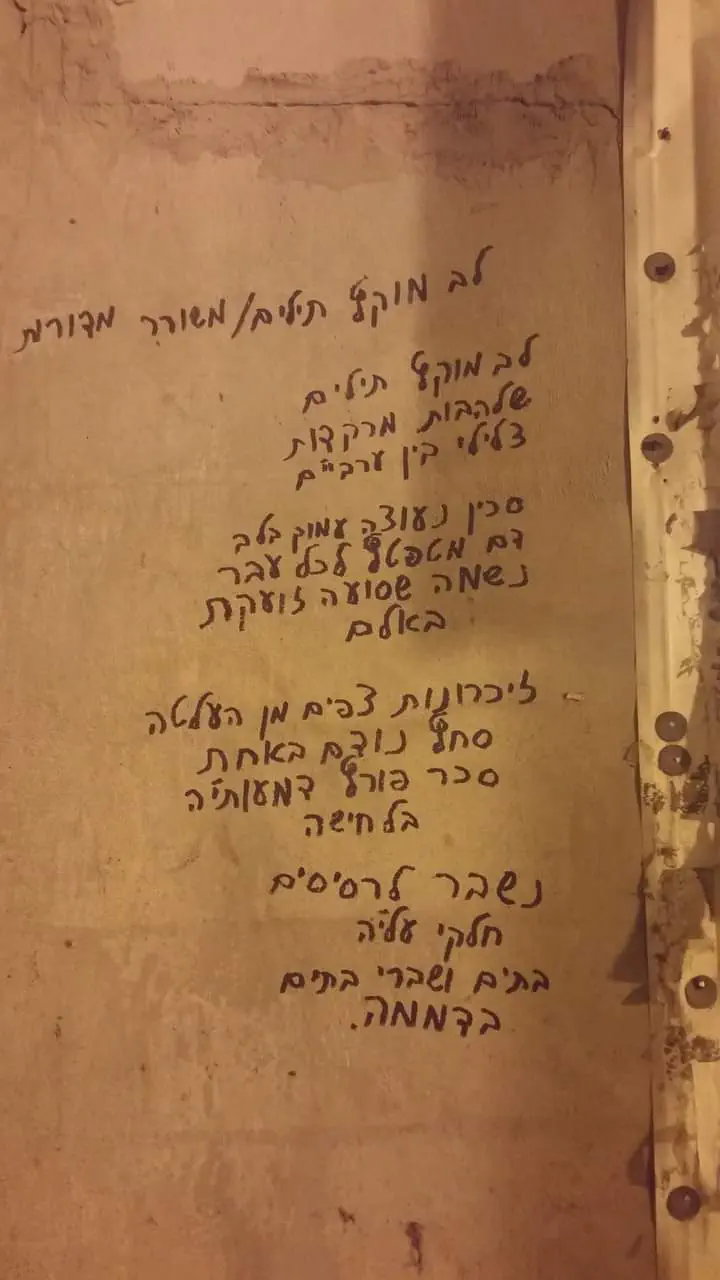 לב מוקף תילים/משורר מדורות
לב מוקף תילים
שלהבות מרקדות
צלילי בין ערביים
סכין נעוצה עמוק בלב
דם מטפטף לכל עבר
נשמה שסועה זועקת
באלם
זיכרונות צפים מן העלטה
סחף נודם באחת
סכר פורץ דמעותיה
בלחישה
נשבר לרסיסים
חלקי עליה
בתים ושברי בתים
בדממה.